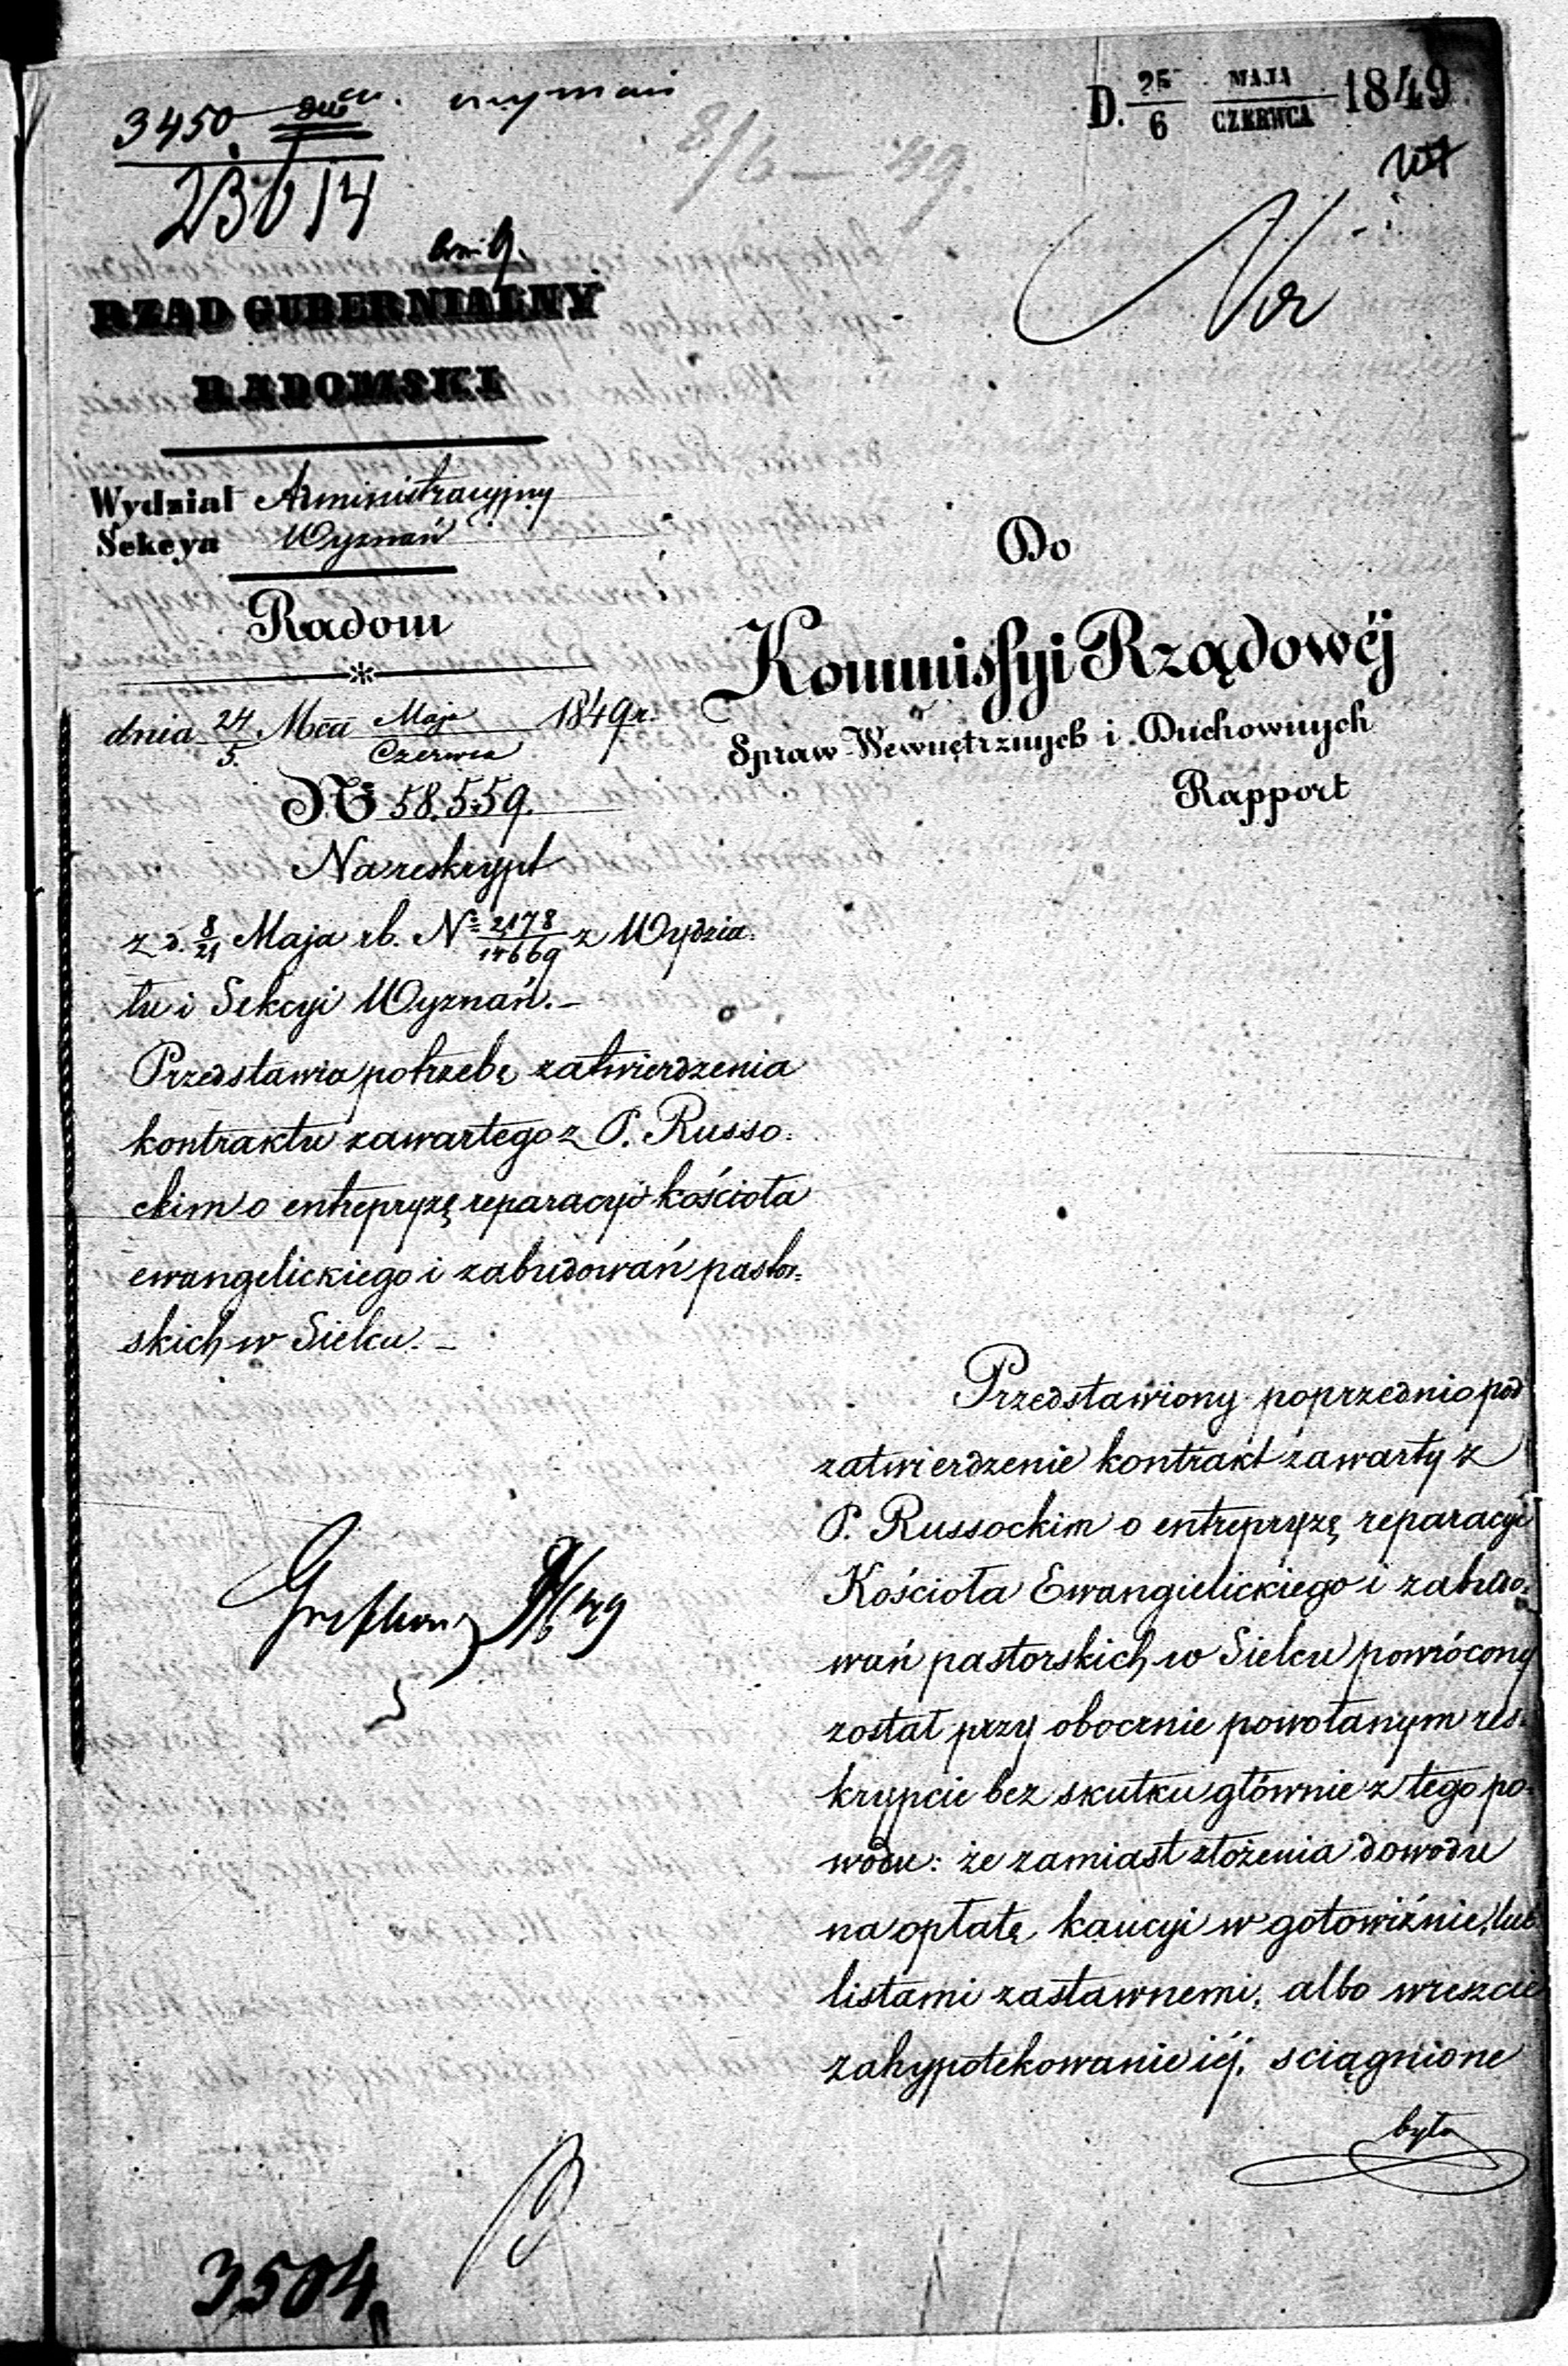 3450.
23614
D. 25/6 MAJA/CZERWCA 1849
8/6 – 49.
RZĄD GUBERNIALNY
RADOMSKI
Wydział Administracyjny
Sekcya Wyznań
Radom
dnia 24/5. Mca Maja/Czerwca 1849 r.
№ 58.559.
Na reskrypt
z d. 8/21 Maja rb. № 2178/14669 z Wydzia-
łu i Sekcyi Wyznań.–
Przedstawia potrzebę zatwierdzenia
kontraktu zawartego z P. Russo-
ckim o entrepryzę reparacyi kościoła
ewangelickiego i zabudowań pastor-
skich w Sielcu.–
Do
Kommissyi Rządowéj
Spraw Wewnętrznych i Duchownych
Rapport
Przedstawiony poprzednio pod
zatwierdzenie kontrakt zawarty z
P. Russockim o entrepryzę reparacyi
Kościoła Ewangielickiego i zabudo-
wań pastorskich w Sielcu powrócony
został przy obocznie powołanym res-
krypcie bez skutku głównie z tego po-
wodu: że zamiast złożenia dowodu
na opłatę kaucyi w gotowiźnie, lub
listami zastawnemi, albo wreszcie
zahypotekowanie iéj, sciągnione
była
3504